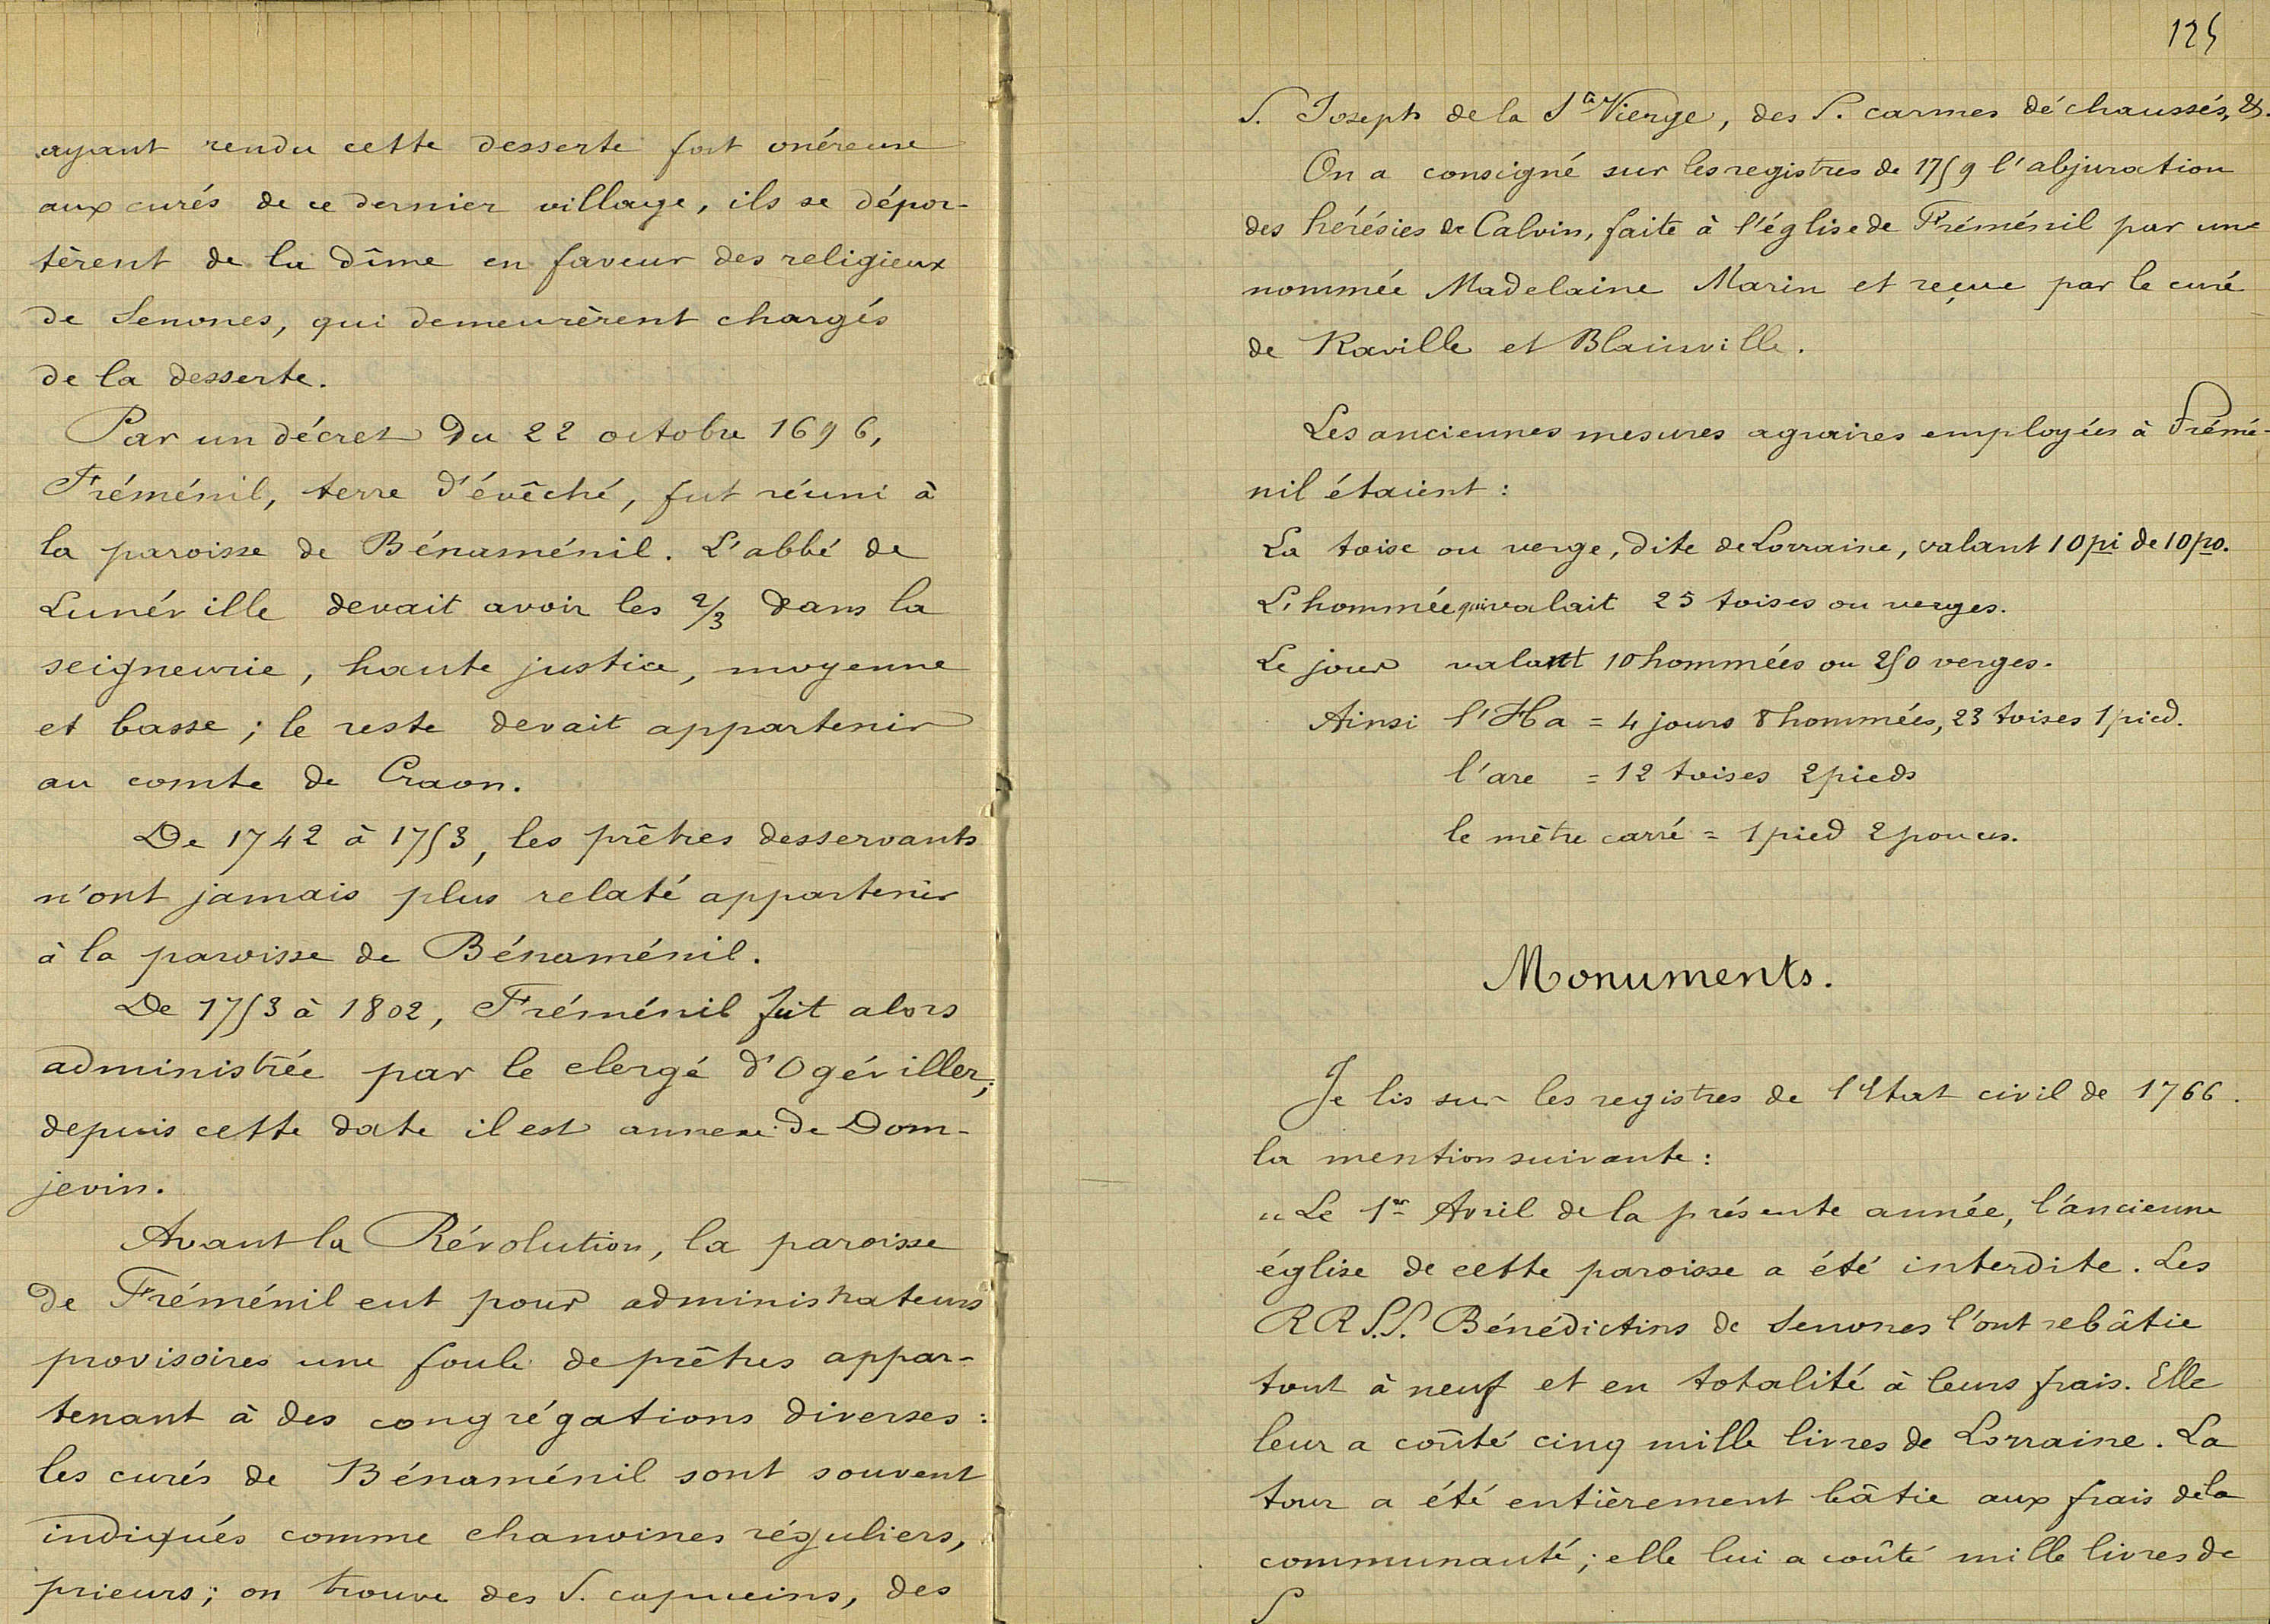 ayant rendu cette desserte fort onéreuse
aux curés de ce dernier village, ils se dépor-
tèrent de la dîme en faveur des religieux
de Senones, qui demeurèrent chargés
de la desserte.
Par un décret du 22 octobre 1696,
Fréménil, terre d'évêché, fut réuni à
la paroisse de Bénaménil. L'abbé de
Lunéville devait avoir les 2/3 dans la
seigneurie, haute justice, moyenne
et basse ; le reste devait appartenir
au comte de Craon.
De 1742 à 1753, les prêtres desservants
n'ont jamais plus relaté appartenir
à la paroisse de Bénaménil.
De 1753 à 1802, Fréménil fut alors
administrée par le clergé d'Ogéviller;
depuis cette date il est annexe de Dom-
jevin.
Avant la Révolution, la paroisse
de Fréménil eut pour administrateurs
provisoires une foule de prêtres appar-
tenant à des congrégations diverses :
les curés de Bénaménil sont souvent
indiqués comme chanoines réguliers,
prieurs ; on trouve des P. capucins, des
125
P. Joseph de la Ste Vierge, des P. carmes déchaussés, &.
On a consigné sur les registres de 1759 l'abjuration
des hérésies de Calvin, faite à l'église de Fréménil par une
nommée Madelaine Marin et reçue par le curé
de Raville et Blainville.
Les anciennes mesures agraires employées à Frémé-
nil étaient :
La toise ou verge, dite de Lorraine, valant 10 pi de 10 po.
L'hommée qui valait 25 toises ou verges.
Le jour valant 10 hommées ou 250 verges.
Ainsi l'Ha = 4 jours 8 hommées, 23 toises 1 pied.
l'are = 12 toises 2 pieds
le mètre carré = 1 pied 2 pouces.
Monuments.
Je lis sur les registres de l'Etat civil de 1766.
la mention suivante :
" Le 1er Avril de la présente année, l'ancienne
église de cette paroisse a été interdite. Les
R R P.P. Bénédictins de Senones l'ont rebâtie
tout à neuf et en totalité à leurs frais. Elle
leur a coûté cinq mille livres de Lorraine. La
tour a été entièrement bâtie aux frais de la
communauté ; elle lui a coûté mille livres de